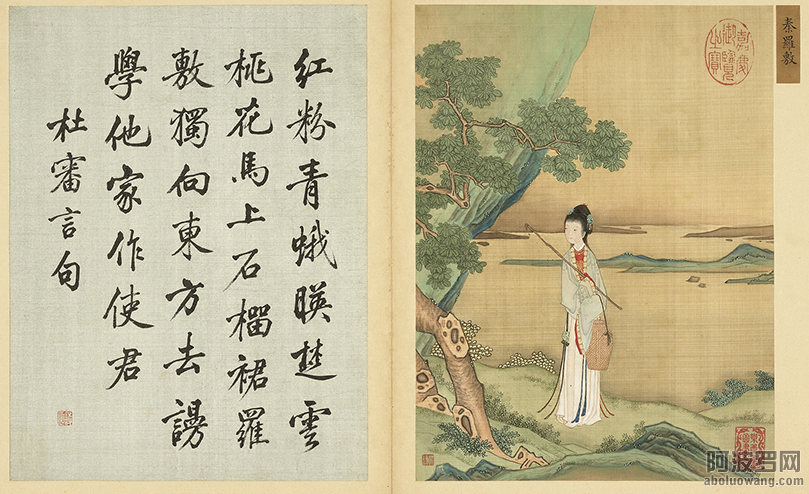 秦羅敷
嘉慶
御覽
之寶
紅粉青蛾暎楚雲
桃花馬上石榴裙羅
敷獨向東方去謾
學他家作使君
杜審言句
阿波罗网
aboluowang.com